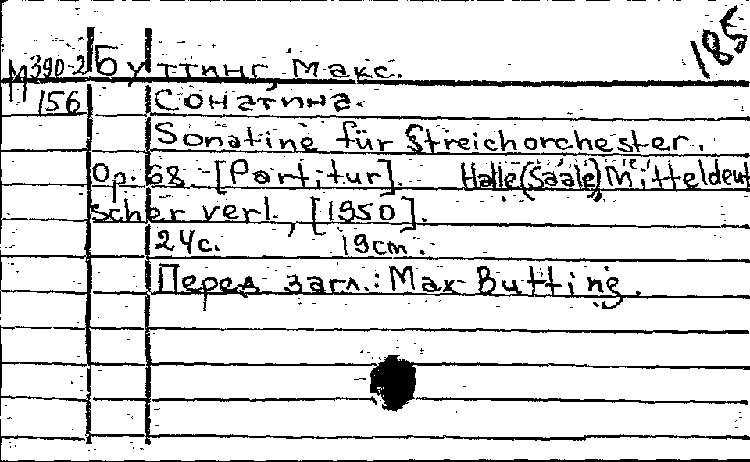 185
М390-2 Буттинг, Макс.
156 Сонатина.
Sonatine für Streichorchester.
Op. 68. - [Partitur]. Halle (Saale) Mitteldeut
scher verl., [1950].
24с. 19cm.
Перед загл.: Max Butting.